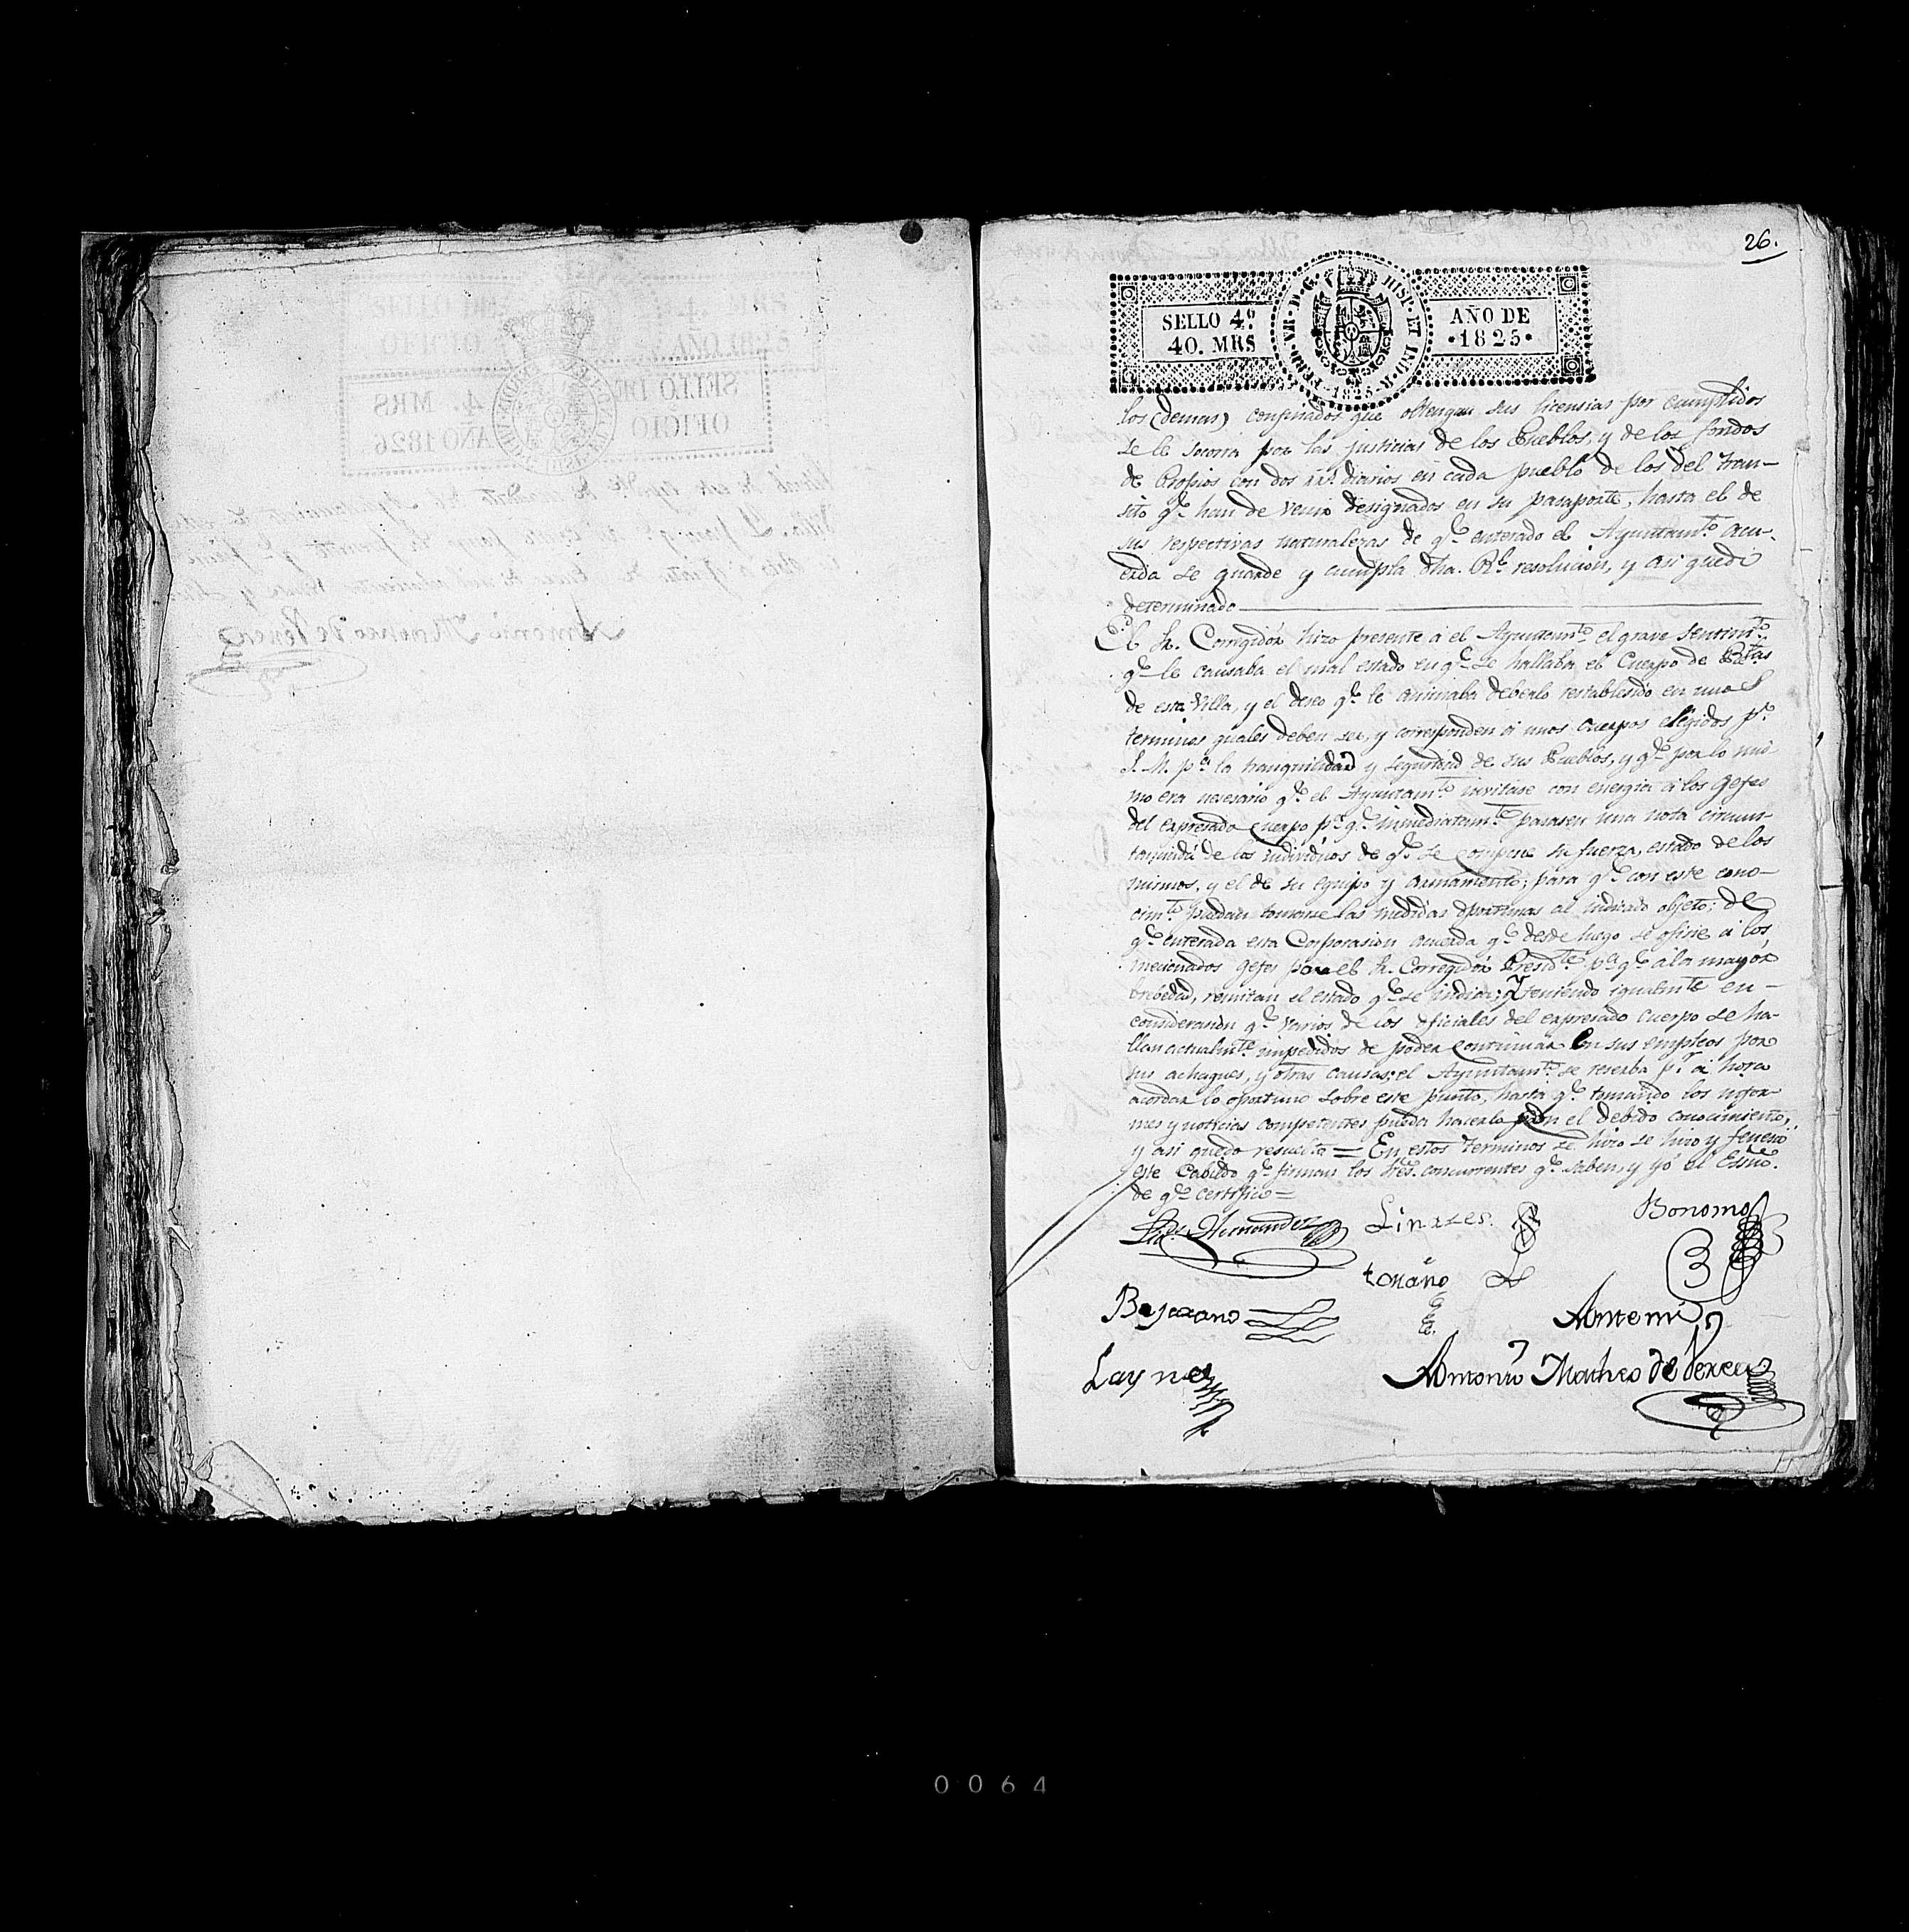 26.
SELLO 4º
40. MRS
AÑO DE
·1825·
HISP· ET IND· R·
·1825·
los (demas) confinados que obtengan sus licensias por cumplidos
se le socorra por las justicias de los Pueblos, y de los fondos
de Propios con dos rr.ˢ diarios en cada pueblo de los del tran-
sito q.ᵉ han de venir designados en su pasaporte, hasta el de
sus respectivas naturalezas de q.ᵉ enterado el Ayuntam.ᵗᵒ acu-
erda se guarde y cumpla dha. R.ˡ resolucion, y asi quedó
determinado
El Sr. Corregidor hizo presente á el Ayuntam.ᵗᵒ el grave sentim.ᵗᵒ
q.ᵉ le causaba el mal estado en q.ᵉ se hallaba el Cuerpo de
de esta Villa, y el deseo q.ᵉ le animaba deberlo restablesido en unos
terminos quales deben ser, y corresponden á unos cuerpos elegidos p.ʳ
S. M. p.ᵃ la tranquilidad y seguridad de sus Pueblos, y q.ᵉ por lo mis
mo era nesesario q.ᵉ el Ayuntam.ᵗᵒ invitase con energia á los Gefes
del expresado Cuerpo p.ᵃ q.ᵉ inmediatam.ᵗᵉ pasasen una nota circuns-
tanciada de los individuos de q.ᵉ se compone su fuerza, estado de los
mismos, y el de su equipo y armamento; para q.ᵉ con este cono-
cim.ᵗᵒ puedan tomarse las medidas oportunas al indicado objeto; de
q.ᵉ enterada esta Corporasion acuerda q.ᵉ desde luego se oficie á los
mecionados Gefes por el Sr. Corregidor Presid.ᵗᵉ p.ᵃ q.ᵉ á la mayor
brebedad, remitan el estado q.ᵉ se indica; Y teniendo igualm.ᵗᵉ en-
considerasion q.ᵉ varios de los oficiales del expresado cuerpo se ha-
llan actualm.ᵗᵉ impedidos de poder continuar en sus empleos por
sus achaques, y otras causas; el Ayuntam.ᵗᵒ se reserba p.ʳ á hora
acordar lo oportuno sobre este punto, hasta q.ᵉ tomando los infor-
mes y noticias competentes pueda hacerlo con el debido conocimiento,
y asi quedo resuelto = En estos terminos se hizo se hizo y feneció
este Cabildo q.ᵉ firman los Sres. concurrentes q.ᵉ saben, y yo el Esno.
de q.ᵉ certifico =
Hernandez
Linares
Bonomo
Bejarano
Antemi
Layne
Antonio Matheo de Perea
SELLO DE
OFICIO
4. MRS
AÑO 1826
0064